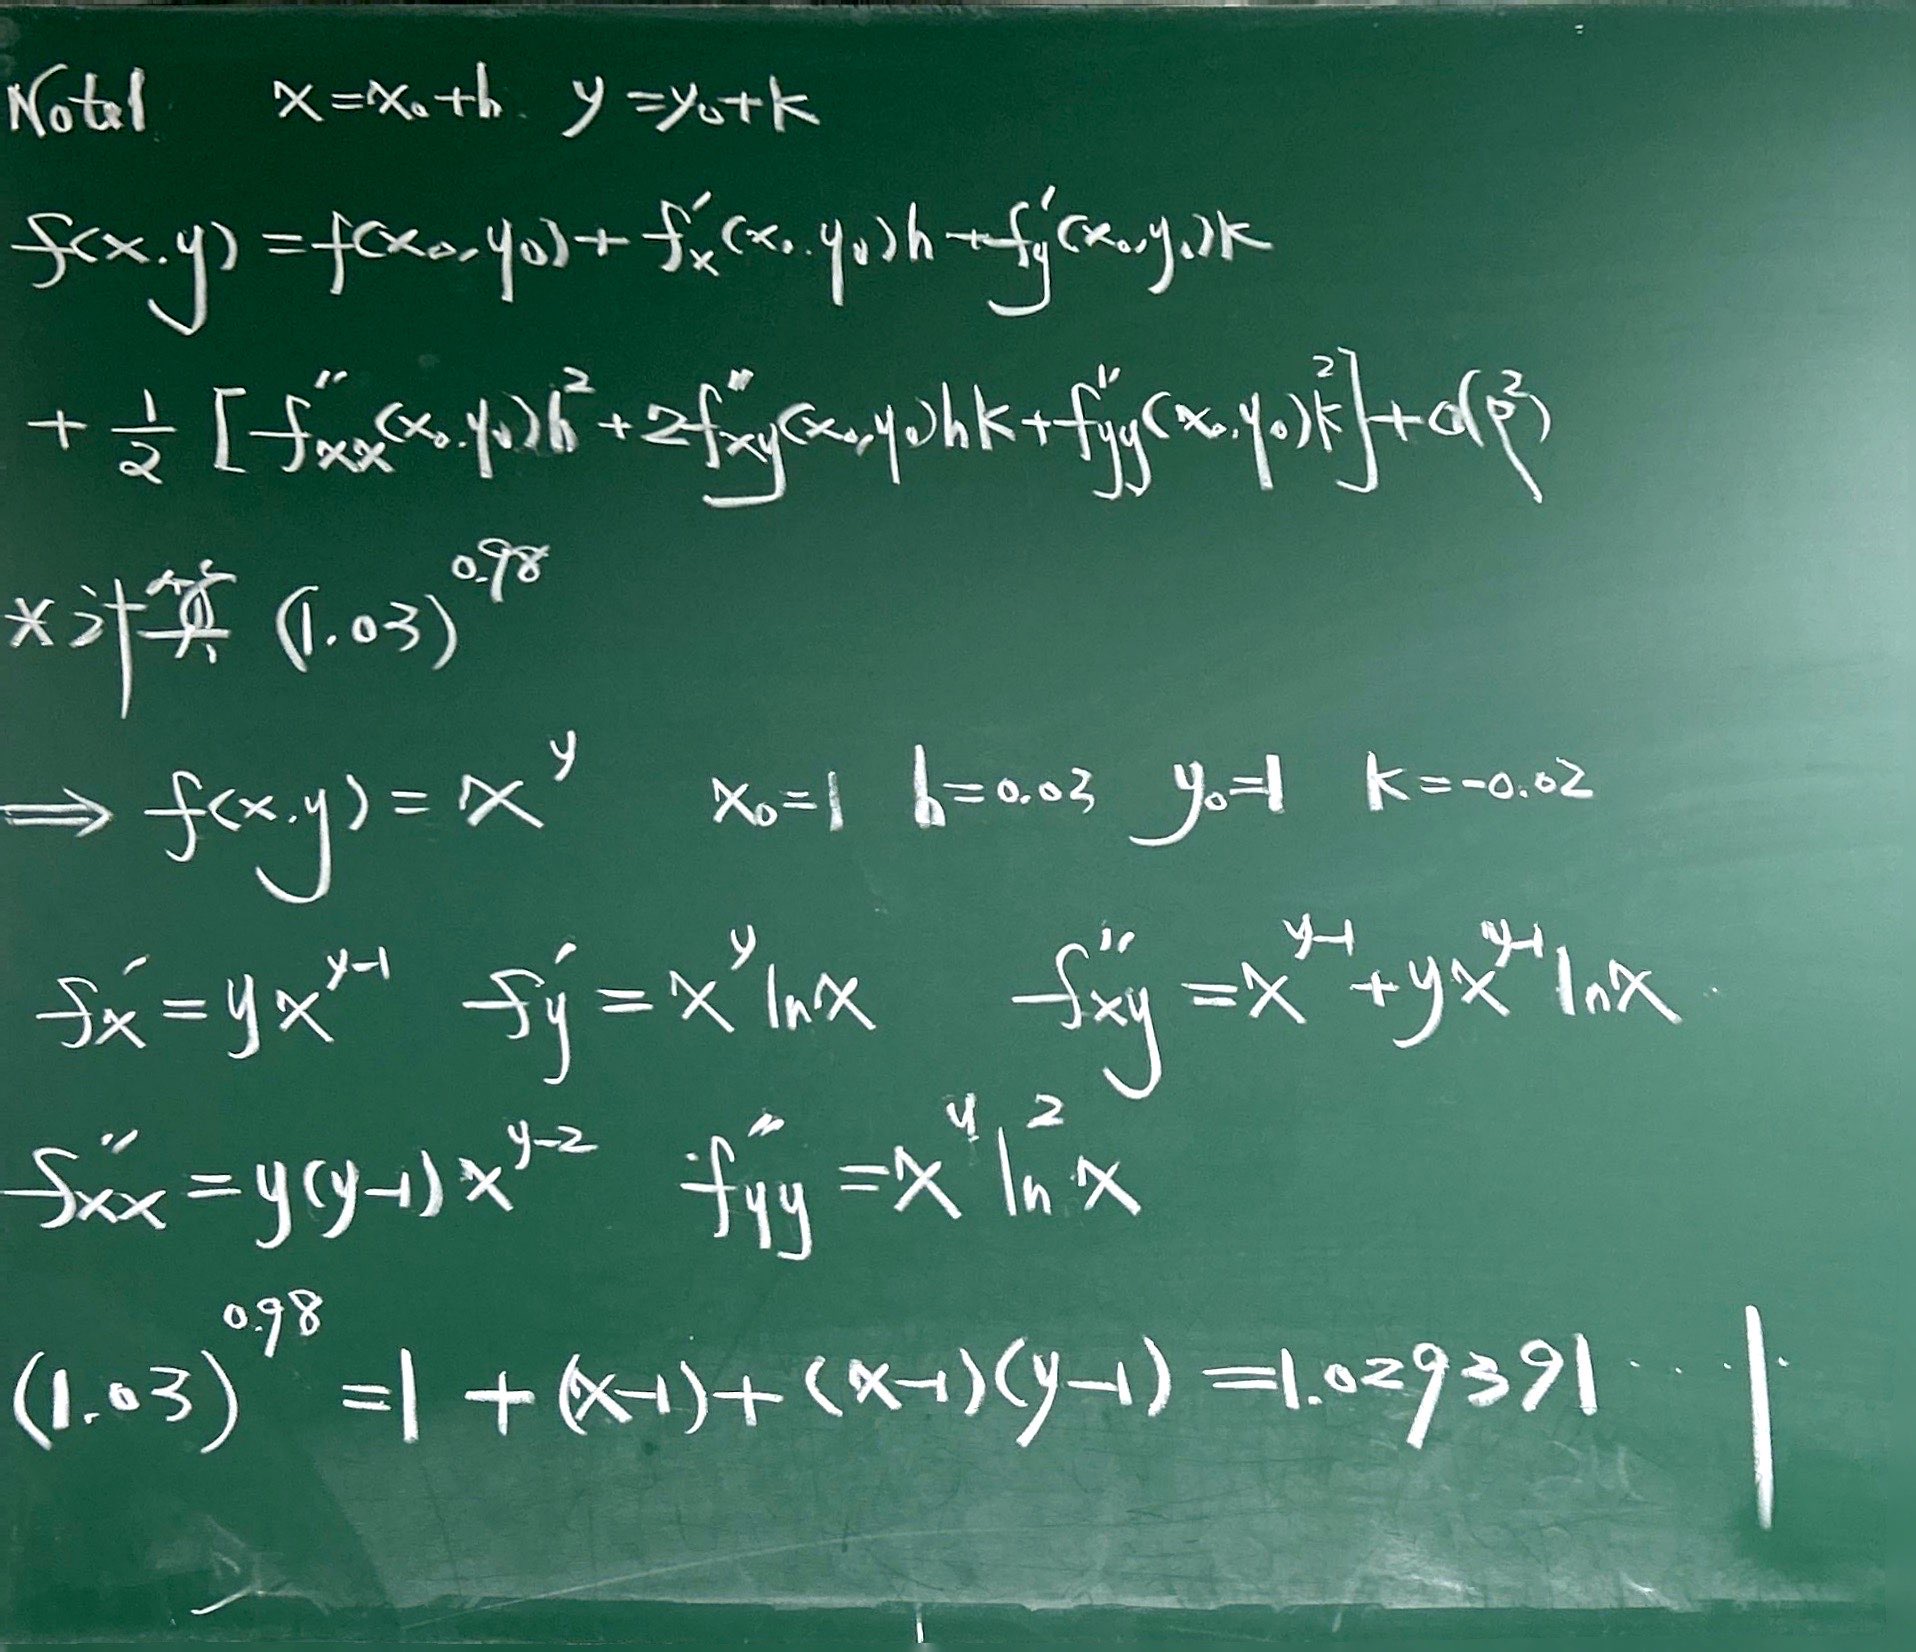 Note1 x=x₀+h. y=y₀+k
f(x.y)=f(x₀,y₀)+f'ₓ(x₀.y₀)h+f'_y(x₀,y₀)k
+ 1/2 [f''ₓₓ(x₀.y₀)h²+2f''_xy(x₀,y₀)hk+f''_yy(x₀.y₀)k²]+o(ρ²)
*计算 (1.03)^0.98
⇒ f(x.y)=x^y x₀=1 h=0.03 y₀=1 k=-0.02
f'ₓ=yx^(y-1) f'_y=x^y lnx f''_xy=x^(y-1)+yx^(y-1)lnx
f''ₓₓ=y(y-1)x^(y-2) f''_yy=x^y ln²x
(1.03)^0.98 =1+(x-1)+(x-1)(y-1)=1.029391...